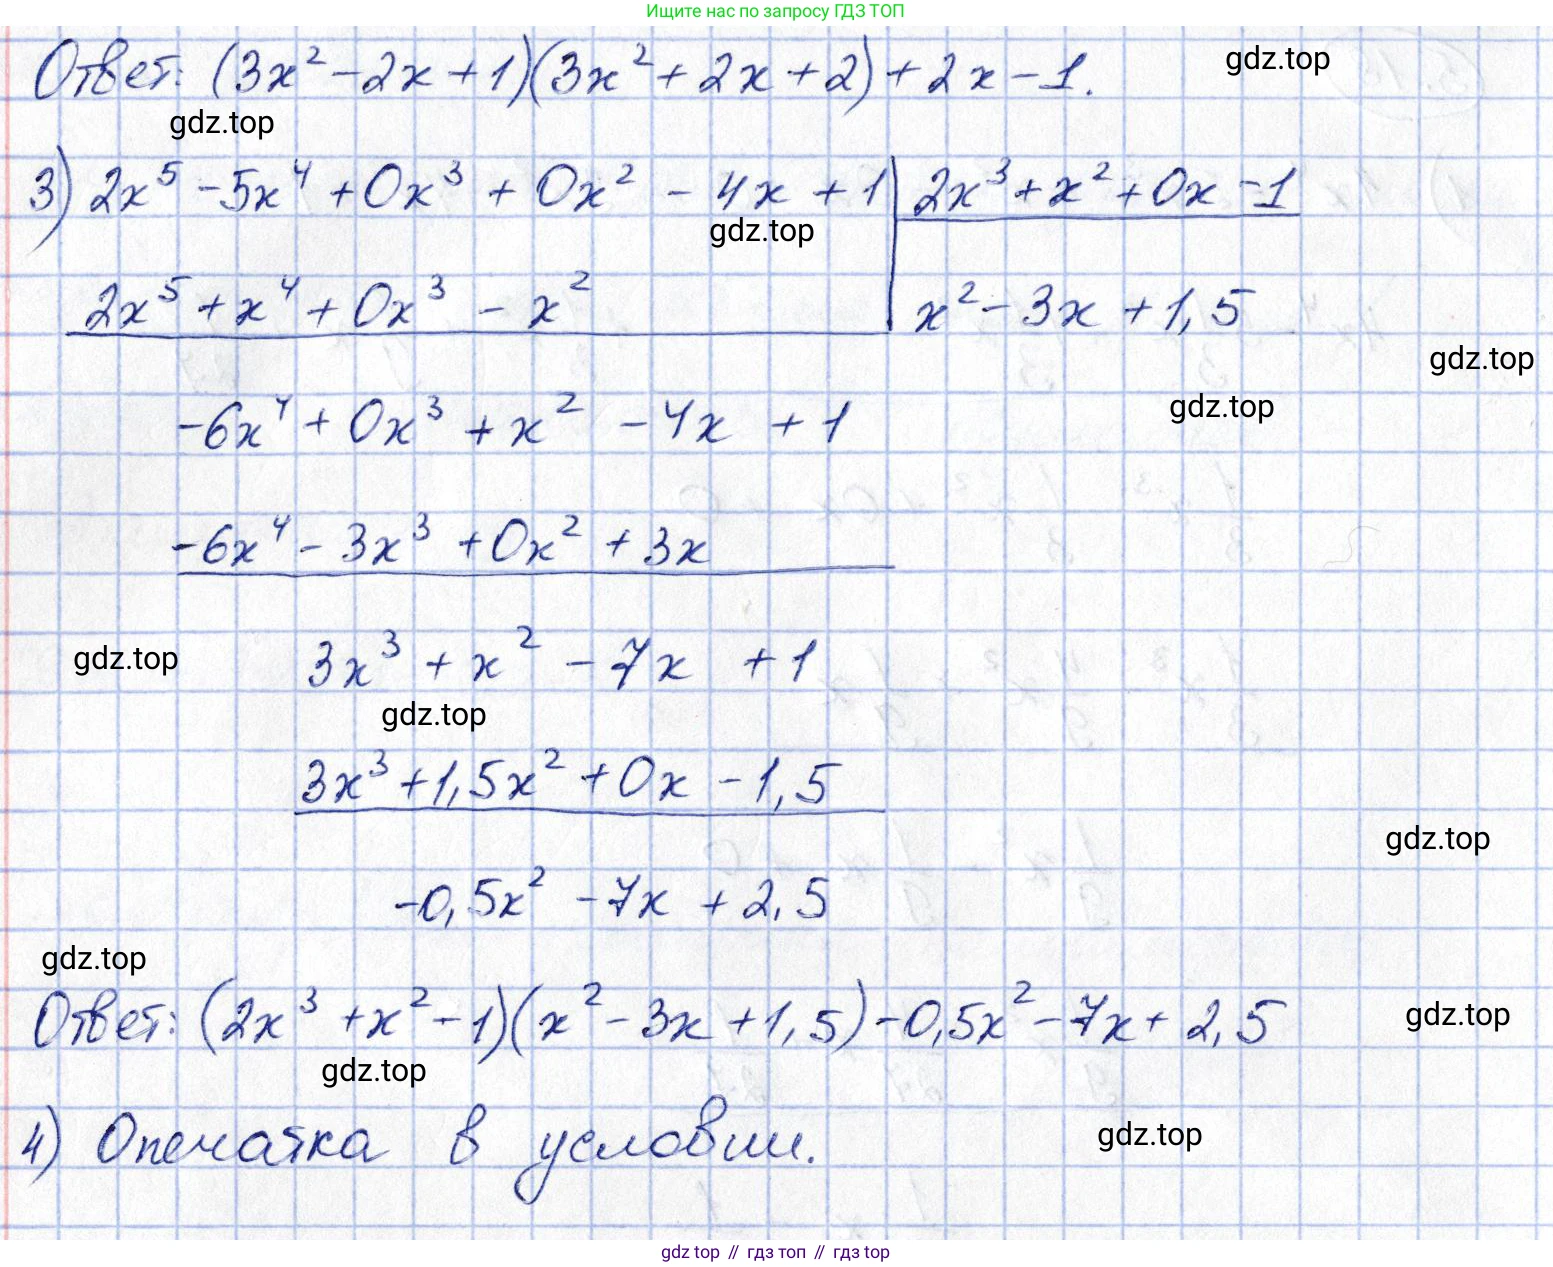 Ищите нас по запросу ГДЗ ТОП
Ответ: (3x² - 2x + 1)(3x² + 2x + 2) + 2x - 1.
gdz.top
gdz.top
3) 2x⁵ - 5x⁴ + 0x³ + 0x² - 4x + 1 | 2x³ + x² + 0x - 1
gdz.top
2x⁵ + x⁴ + 0x³ - x² | x² - 3x + 1,5
gdz.top
-6x⁴ + 0x³ + x² - 4x + 1
gdz.top
-6x⁴ - 3x³ + 0x² + 3x
gdz.top
3x³ + x² - 7x + 1
gdz.top
3x³ + 1,5x² + 0x - 1,5
gdz.top
-0,5x² - 7x + 2,5
gdz.top
Ответ: (2x³ + x² - 1)(x² - 3x + 1,5) - 0,5x² - 7x + 2,5
gdz.top
gdz.top
4) Опечатка в условии.
gdz.top
gdz top // гдз топ // гдз top